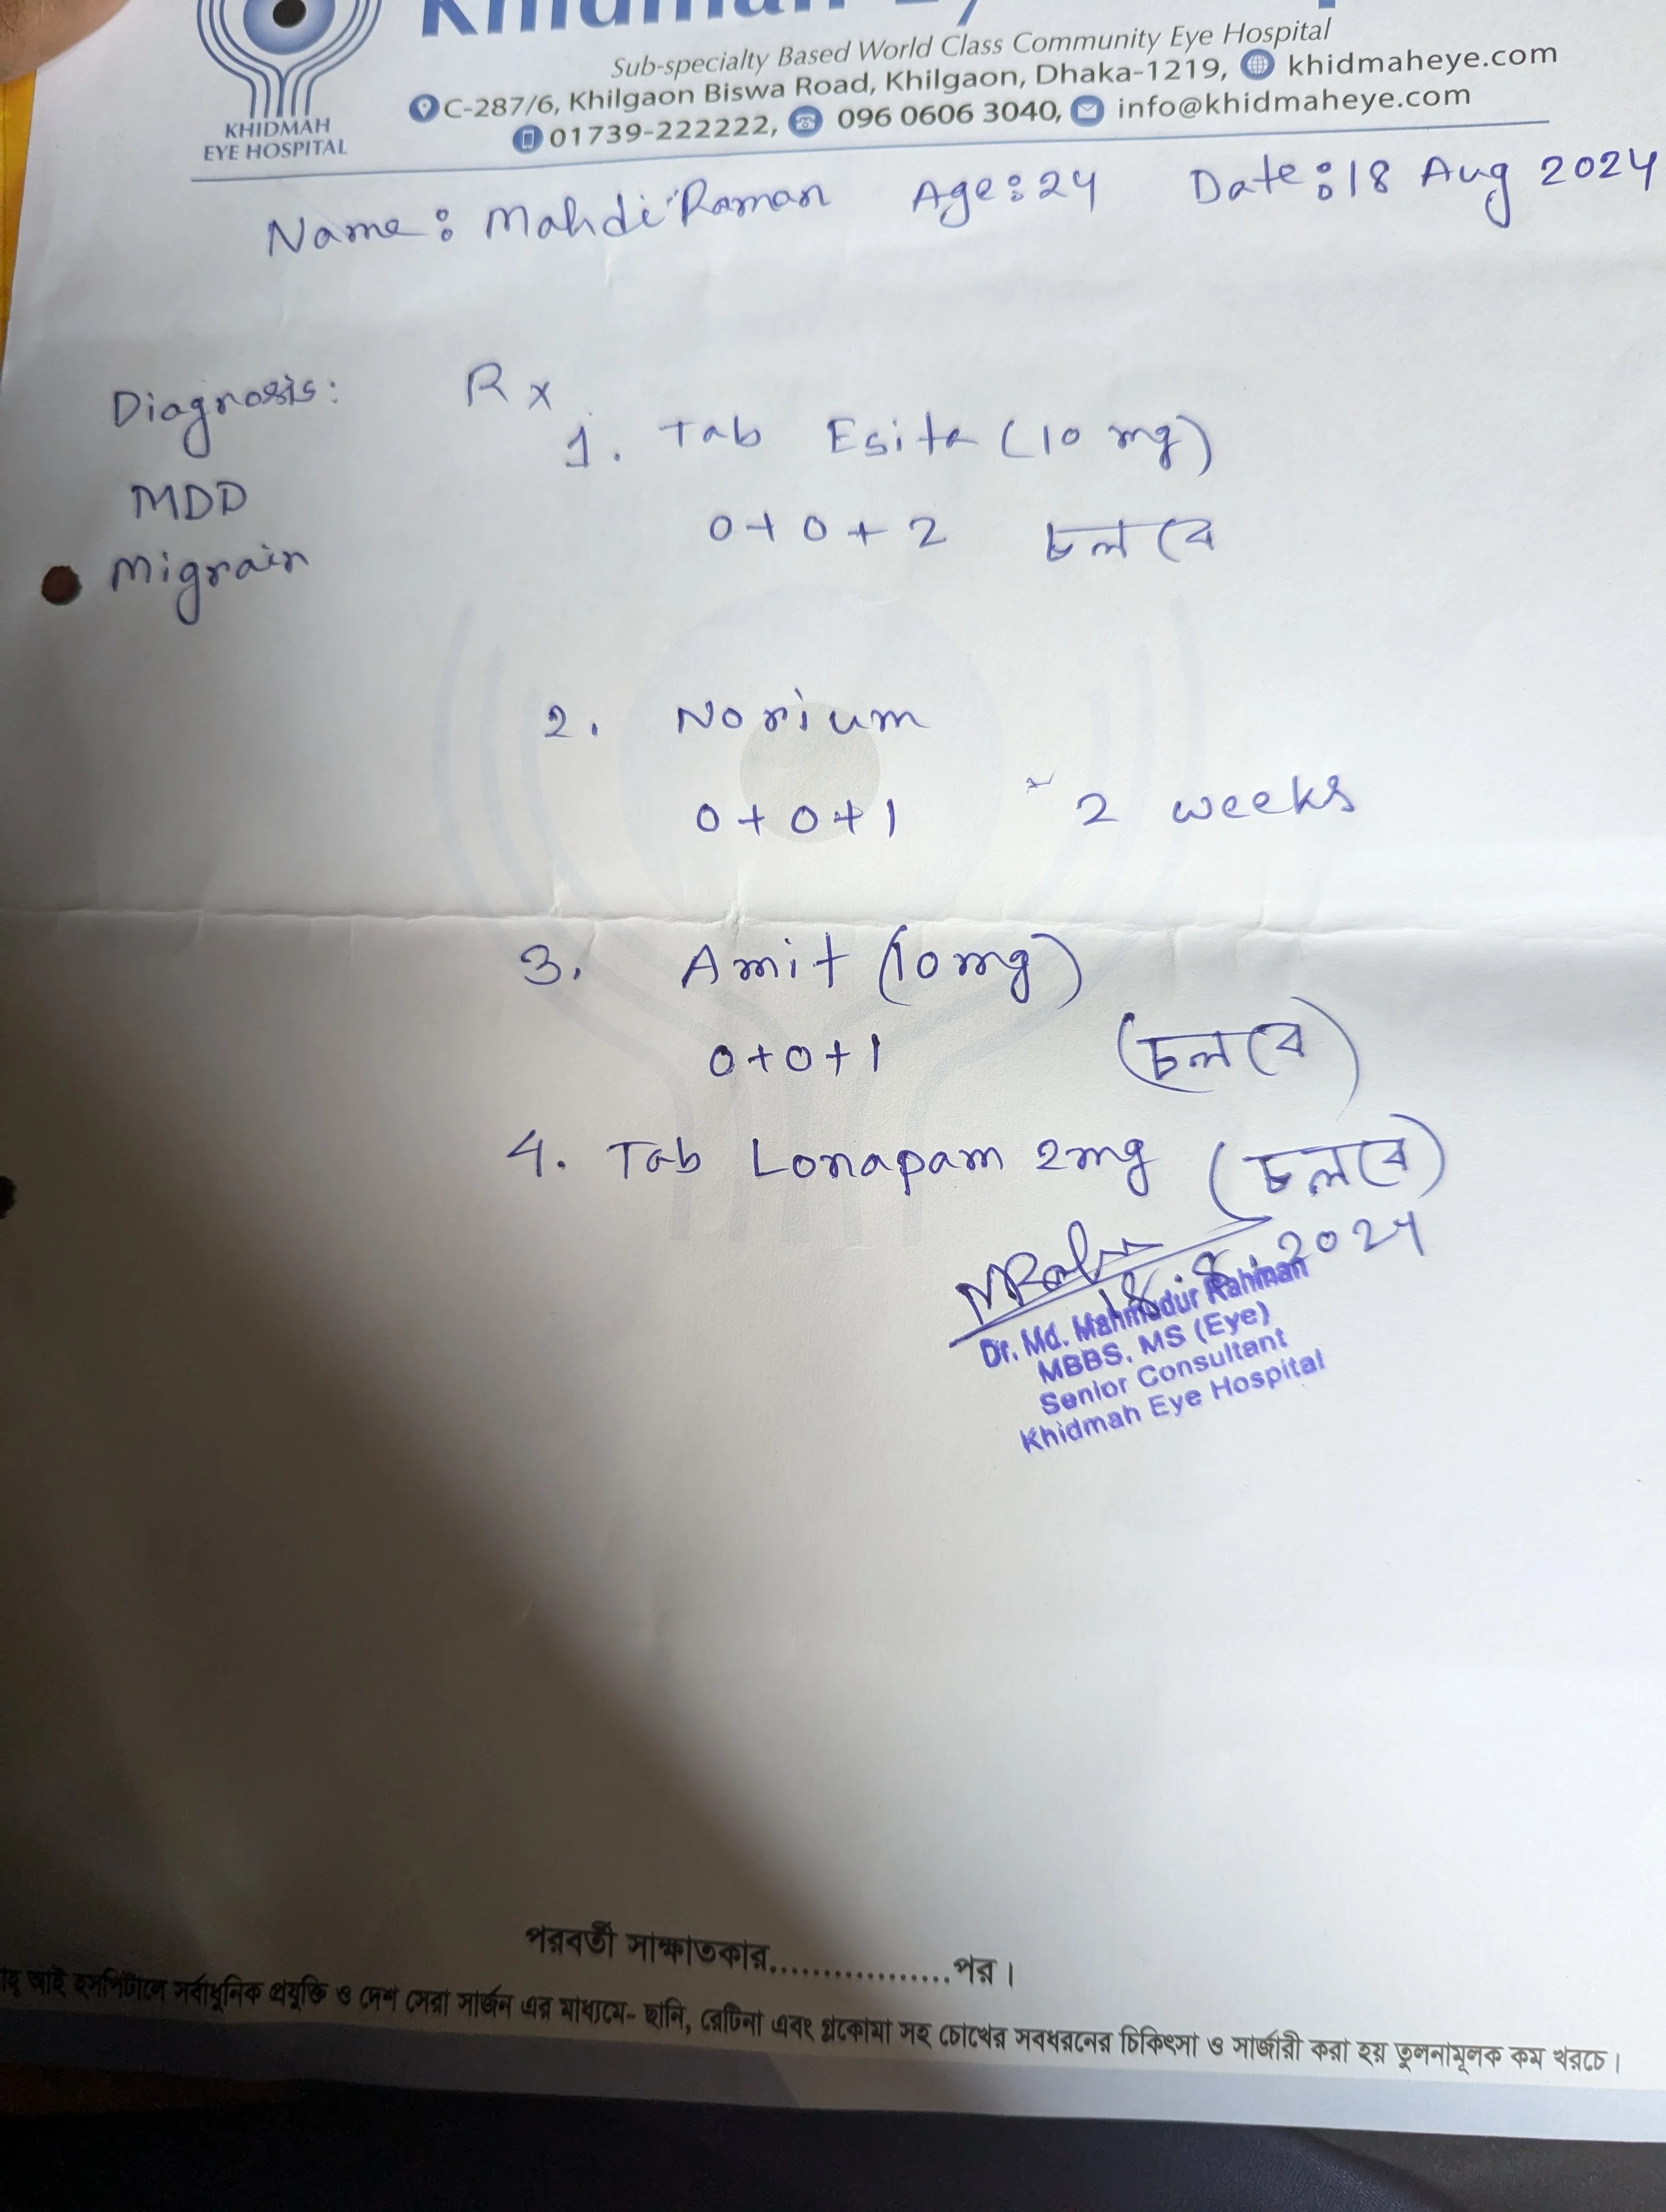 KHIDMAH
EYE HOSPITAL
Sub-specialty Based World Class Community Eye Hospital
C-287/6, Khilgaon Biswa Road, Khilgaon, Dhaka-1219, khidmaheye.com
01739-222222, 096 0606 3040, info@khidmaheye.com
Name: Mahdi Raman Age: 24 Date: 18 Aug 2024
Diagnosis:
MDD
Migrain
Rx
1. Tab Esita (10 mg)
0+0+2 চলবে
2. Norium
0+0+1 2 weeks
3. Amit (10mg)
0+0+1 (চলবে)
4. Tab Lonapam 2mg (চলবে)
18.8.2024
Dr. Md. Mahmudur Rahman
MBBS, MS (Eye)
Senior Consultant
Khidmah Eye Hospital
পরবর্তী সাক্ষাতকার.................পর।
আই হসপিটালে সর্বাধুনিক প্রযুক্তি ও দেশ সেরা সার্জন এর মাধ্যমে- ছানি, রেটিনা এবং গ্লুকোমা সহ চোখের সবধরনের চিকিৎসা ও সার্জারী করা হয় তুলনামূলক কম খরচে।